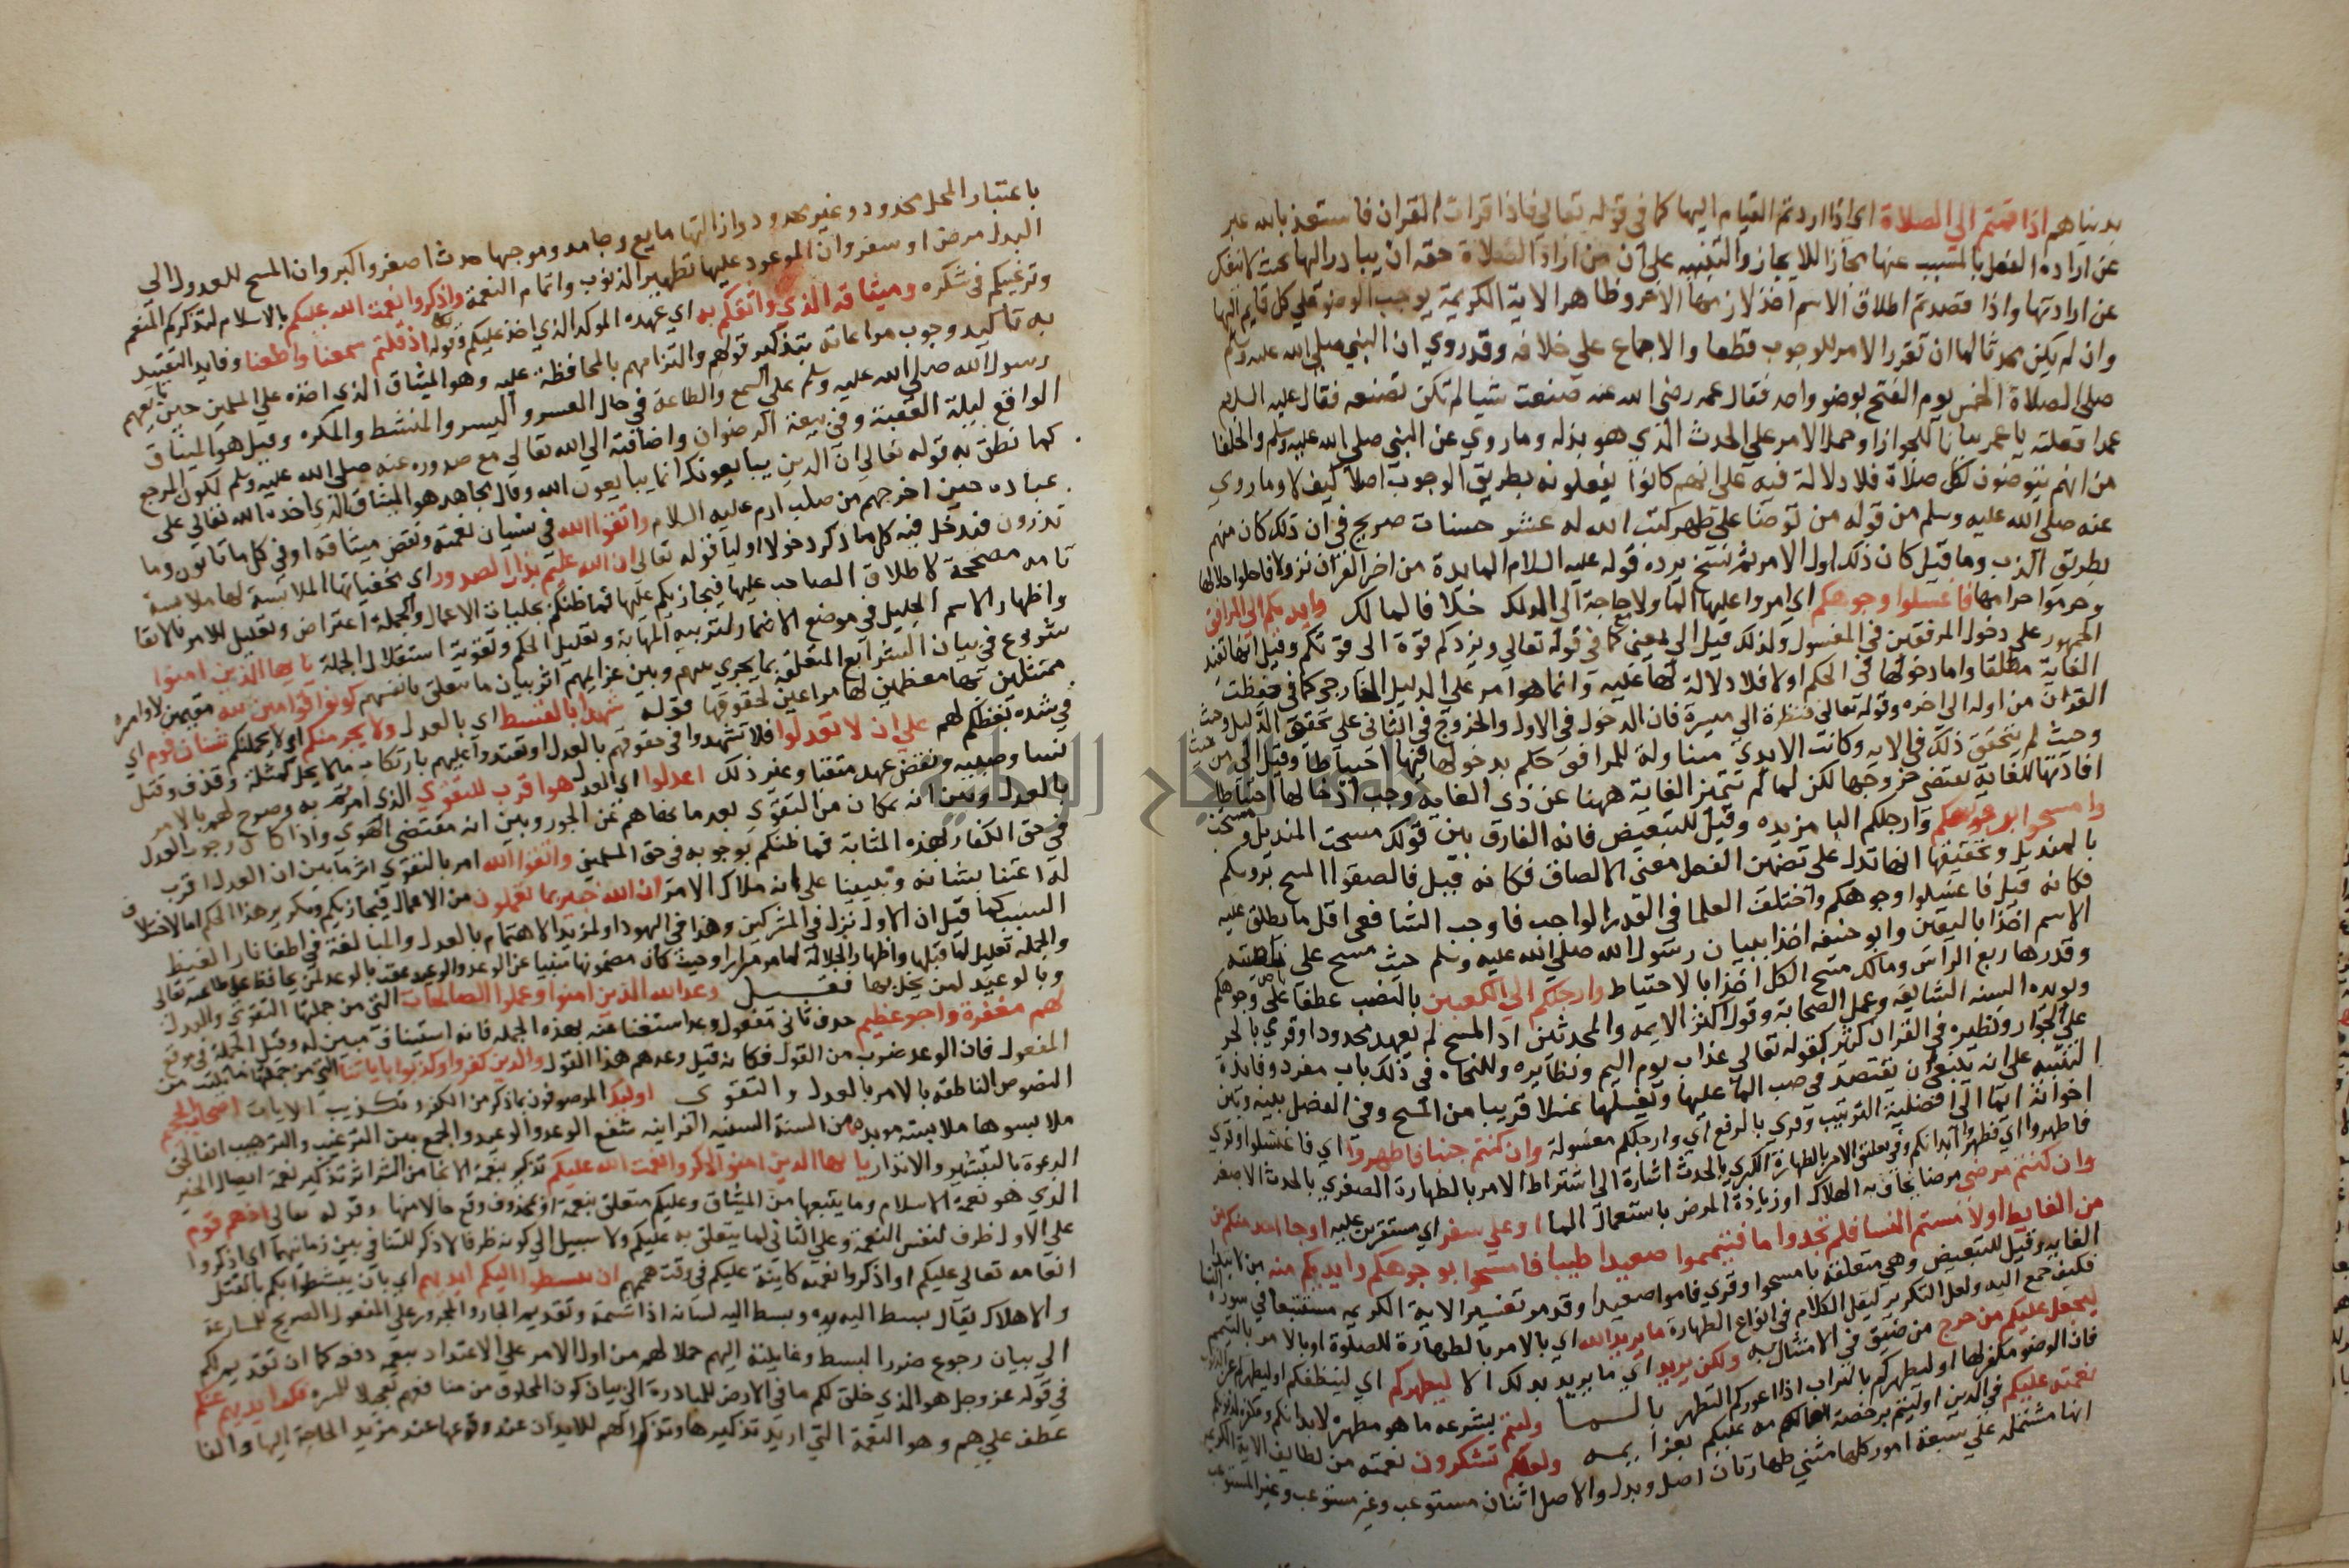 بدنياهم اذا قمتم الي الصلاة اي اذا اردتم القيام اليها كما في قوله تعالي فاذا قرات القران فاستعذ بالله عبر
عن ارادة الفعل بالمسبب عنها مجازا للايجاز والتنبيه علي ان من اراد الصلاة حقه ان يبادر اليها بحيث لا ينفك
عن ارادتها واذا قصدتم اطلاق الاسم احد لازمها الاخر وظاهر الاية الكريمة يوجب الوضو علي كل قايم اليها
وان لم يكن محدثا لما ان تقرر الامر للوجوب قطعا والاجماع علي خلافه وقد روي ان النبي صلي الله عليه وسلم
صلي الصلاة الخمس يوم الفتح بوضو واحد فقال عمر رضي الله عنه صنعت شيا لم تكن تصنعه فقال عليه السلام
عمدا فعلته يا عمر بيانا للجواز وحمل الامر علي الحدث الذي هو بذله وما روي عن النبي صلي الله عليه وسلم والخلفا
من انهم يتوضون لكل صلاة فلا دلالة فيه علي انهم كانوا يفعلونه بطريق الوجوب اصلا كيف لا وما روي
عنه صلي الله عليه وسلم من قوله من توضا علي طهر كتب الله له عشر حسنات صريح في ان ذلك كان منهم
بطريق الندب وما قيل كان ذلك اول الامر ثم نسخ يرده قوله عليه السلام المايدة من اخر القران نزولا فاحلوا حلالها
وحرموا حرامها فاغسلوا وجوهكم اي امروا عليها الما ولا حاجة الي الدلك خلافا لمالك وايديكم الي المرافق
الجمهور علي دخول المرفقين في المغسول ولذلك قيل الي بمعني مع كما في قوله تعالي ويزدكم قوة الي قوتكم وقيل انها تفيد
الغاية مطلقا واما دخولها في الحكم او لا فلا دلالة لها عليه وانما هو امر علي الدليل الخارجي كما في حفظت
القران من اوله الي اخره وقوله تعالي فنظرة الي ميسرة فان الدخول في الاول والخروج في الثاني علي تحقق الدليل وحيث
وحيث لم يتحقق ذلك في الايه وكانت الايدي متناولة للمرافق حكم بدخولها فيها احتياطا وقيل الي من حيث
افادتها للغاية يقتضي خروجها لكن لما لم تتميز الغاية ههنا عن ذي الغاية وجب ادخالها احتياطا
وامسحوا بروسكم وارجلكم البا مزيده وقيل للتبعيض فانه الفارق بين قولك مسحت المنديل ومسحت
بالمنديل وتحقيقها انها تدل علي تضمين الفعل معني الالصاق فكانه قيل فالصقوا المسح بروسكم
فكانه قيل فاغسلوا وجوهكم واختلف العلما في القدر الواجب فاوجب الشافعي اقل ما يطلق عليه
الاسم اخذا باليقين وابو حنيفه اخذا ببيان رسول الله صلي الله عليه وسلم حيث مسح علي ناصيته
وقدرها ربع الراس ومالك مسح الكل اخذا بالاحتياط وارجلكم الي الكعبين بالنصب عطفا علي وجوهكم
ويويده السنه الشايعه وعمل الصحابة وقول اكثر الايمه والمحدثين اذ المسح لم يعهد محدودا وقري بالجر
علي الجوار ونظيره في القران كثير كقوله تعالي عذاب يوم اليم ونظايره وللنحاه في ذلك باب مفرد وفايدة
التنبيه علي انه ينبغي ان يقتصد في صب الما عليها ويغسلها غسلا قريبا من المسح وفي الفصل بينه وبين
اخواته ايما الي افضلية الترتيب وقري بالرفع اي وارجلكم مغسولة وان كنتم جنبا فاطهروا اي فاغتسلوا وقري
فاطهروا اي فطهروا ابدانكم وفي تعليق الامر بالطهارة الكبري بالحدث اشارة الي اشتراط الامر بالطهارة الصغري بالحدث الاصغر
وان كنتم مرضي مرضا يخاف به الهلاك او زيادة المرض باستعمال الما او علي سفر اي مستقرين عليه او جا احد منكم
من الغايط اولامستم النسا فلم تجدوا ما فتيمموا صعيدا طيبا فامسحوا بوجوهكم وايديكم منه من لابتدا
الغايه وقيل للتبعيض وهي متعلقة بامسحوا وقري فاموا صعيدا وقد مر تفسير الاية الكريمه مستتبعا في سورة النسا
ليجعل عليكم من حرج من ضيق في الامتثال به ولكن يريد اي ما يريد بذلك الا ليطهركم اي لينظفكم او ليطهركم
فان الوضو مكفر لها او ليطهركم بالتراب اذا اعوزكم التطهر بالما وليتم بشرعه ما هو مطهر لابدانكم
نعمته عليكم في الدين او ليتم برخصه انعامه عليكم بعزايمه ولعلكم تشكرون نعمته من لطايف الاية الكريمه
انها مشتملة علي سبعة امور كلها مثني طهارتان اصل وبدل والاصل اثنان مستوعب وغير مستوعب وغير المستوعب
باعتبار المحل محدود وغير محدود وازالتها مايع وجامد وموجبها حدث اصغر واكبر وان المسح للعدول الي
البدل مرض او سفر وان الموعود عليها تطهير الذنوب واتمام النعمة واذكروا نعمة الله عليكم بالاسلام لتذكركم المنعم
وترغيبكم في شكره وميثاقه الذي واثقكم به اي عهده الموكد الذي اخذ عليكم وقوله اذ قلتم سمعنا واطعنا وفايد التقييد
به تاكيد وجوب مراعاته بتذكير قولهم والتزامهم بالمحافظة عليه وهو الميثاق الذي اخذه علي المسلمين حين بايعهم
رسول الله صلي الله عليه وسلم علي السمع والطاعة في حال العسر واليسر والمنشط والمكره وقيل هو الميثاق
الواقع ليلة العقبة وفي بيعة الرضوان واضافته الي الله تعالي مع صدوره عنه صلي الله عليه وسلم لكون المرجع
كما نطق به قوله تعالي ان الذين يبايعونك انما يبايعون الله وقال مجاهد هو الميثاق الذي اخذه الله تعالي علي
عباده حين اخرجهم من صلب ادم عليه السلام واتقوا الله في نسيان نعمته ونقض ميثاقه او في كل ما تاتون وما
تذرون فيدخل فيه كل ما ذكر دخولا اوليا قوله تعالي ان الله عليم بذات الصدور اي بخفياتها الملابسة لها ملابسة
تامه مصححة لاطلاق الصاحب عليها فيجازيكم عليها فما ظنكم بجليات الاعمال والجملة اعتراض وتعليل للامر بالاتقا
واظهار الاسم الجليل في موضع الاضمار لتربيه المهابة وتعليل الحكم وتقوية استقلال الجملة يا ايها الذين امنوا
شروع في بيان الشرايع المتعلقة بما يجري بينهم وبين غيرهم اثر بيان ما يتعلق بانفسهم كونوا قوامين لله مقيمين لاوامره
ممتثلين بها معظمين لها مراعين لحقوقها قوله شهدا بالقسط اي بالعدل ولا يجرمنكم اي لا يحملنكم شنان قوم اي
في شده بغضكم لهم علي ان لا تعدلوا فلا تشهدوا في حقوقهم بالعدل او تعتدوا عليهم بارتكاب ما لا يحل كمثلة وقذف وقتل
نسا وصبيه ونقض عهد متقنا وغير ذلك اعدلوا اي العدل هو اقرب للتقوي الذي امرتم به وصرح لهم بالامر
بالعدل وبين انه بمكان من التقوي بعد ما نهاهم عن الجور وبين انه مقتضي الهوي واذا كان وجوب العدل
في حق الكفار بهذه المثابة فما ظنكم بوجوبه في حق المسلمين واتقوا الله امر بالتقوي اثر ما بين ان العدل اقرب
له اعتنا بشانه وتنبيها علي انه ملاك الامر ان الله خبير بما تعملون من الاعمال فيجازيكم وتكرير هذا الحكم اما لاختلاف
السبب كما قيل ان الاول نزل في المشركين وهذا في اليهود او لمزيد الاهتمام بالعدل والمبالغة في اطفا نار الغيظ
والجمله تعليل لما قبلها واظهار الجلالة لما مر مرارا وحيث كان مضمونها منبيا عن الوعد والوعيد عقب بالوعد لمن يحافظ علي طاعته تعالي
وبالوعيد لمن يخل بها فقيل وعد الله الذين امنوا وعملوا الصالحات التي من جملتها التقوي والعدل
لهم مغفرة واجر عظيم حذف ثاني مفعولي وعد استغناء عنه بهذه الجمله فانه استيناف مبين له وقيل الجملة في موقع
المفعول فان الوعد ضرب من القول فكانه قيل وعدهم هذا القول والذين كفروا وكذبوا باياتنا التي من جملتها ما تليت من
النصوص الناطقه بالامر بالعدل والتقوي اوليك الموصوفون بما ذكر من الكفر وتكذيب الايات اصحاب الجحيم
ملابسوها ملابسة مويدة من السنة السنيه القرانيه شفع الوعد والوعيد والجمع بين الترغيب والترهيب ايفا لحق
الدعوة بالتبشير والانذار يا ايها الذين امنوا اذكروا نعمت الله عليكم تذكير بنعمة الانجا من الشر اثر تذكير نعمة ايصال الخير
الذي هو نعمة الاسلام وما يتبعها من الميثاق وعليكم متعلق بنعمة او بمحذوف وقع حالا منها وقوله تعالي اذ هم قوم
علي الاول ظرف لنفس النعمة وعلي الثاني لما يتعلق به عليكم ولا سبيل الي كونه ظرفا لاذكر للتنافي بين زمانيهما اي اذكروا
انعامه تعالي عليكم او اذكروا نعمه كاينة عليكم في وقت همهم ان يبسطوا اليكم ايديهم اي بان يبسطوا بكم بالقتل
والاهلاك يقال بسط اليه يده وبسط اليه لسانه اذا شتمه وتقديم الجار والمجرور علي المفعول الصريح للمسارعة
الي بيان رجوع ضرر البسط وغايلته اليهم حملا لهم من اول الامر علي الاعتداد بنعمة دفعه كما ان تقديم لكم
في قوله عز وجل هو الذي خلق لكم ما في الارض للمبادرة الي بيان كون المخلوق من منافعهم تعجيلا للمسره فكف ايديهم عنكم
عطف علي هم وهو النعمة التي اريد تذكيرها وذكر الهم للايذان عند وقوعها عند مزيد الحاجة اليها والفا